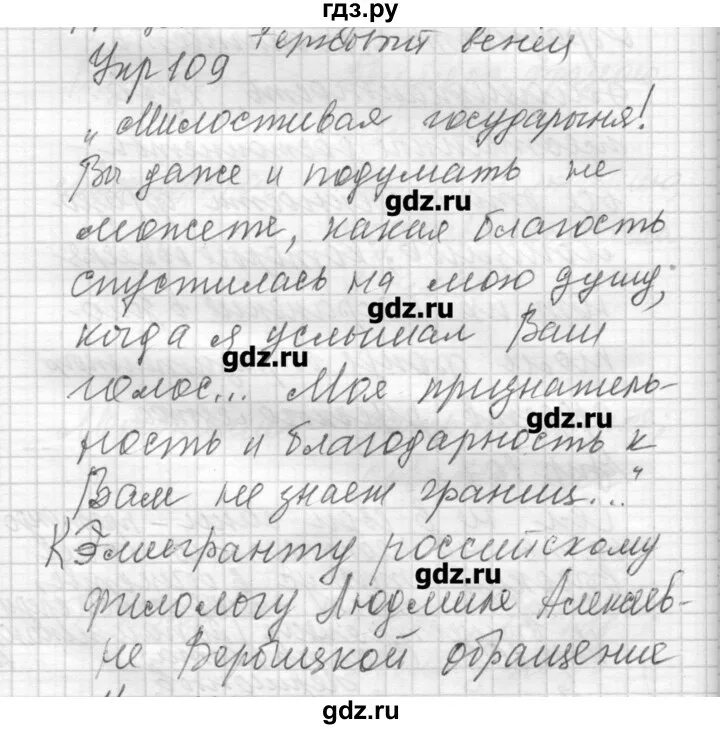 гдз.ру
венец
Упр 109
„Милостивая государыня!
Вы даже и подумать не
gdz.ru
можете, какая благость
спустилась на мою душу,
gdz.ru
когда я услышал Ваш
gdz.ru
голос... Моя признатель-
gdz.ru
ность и благодарность к
Вам не знает границ..."
К Эмигранту российскому
gdz.ru
филологу Людмиле Алексеев-
не Вербицкой обращение
gdz.ru